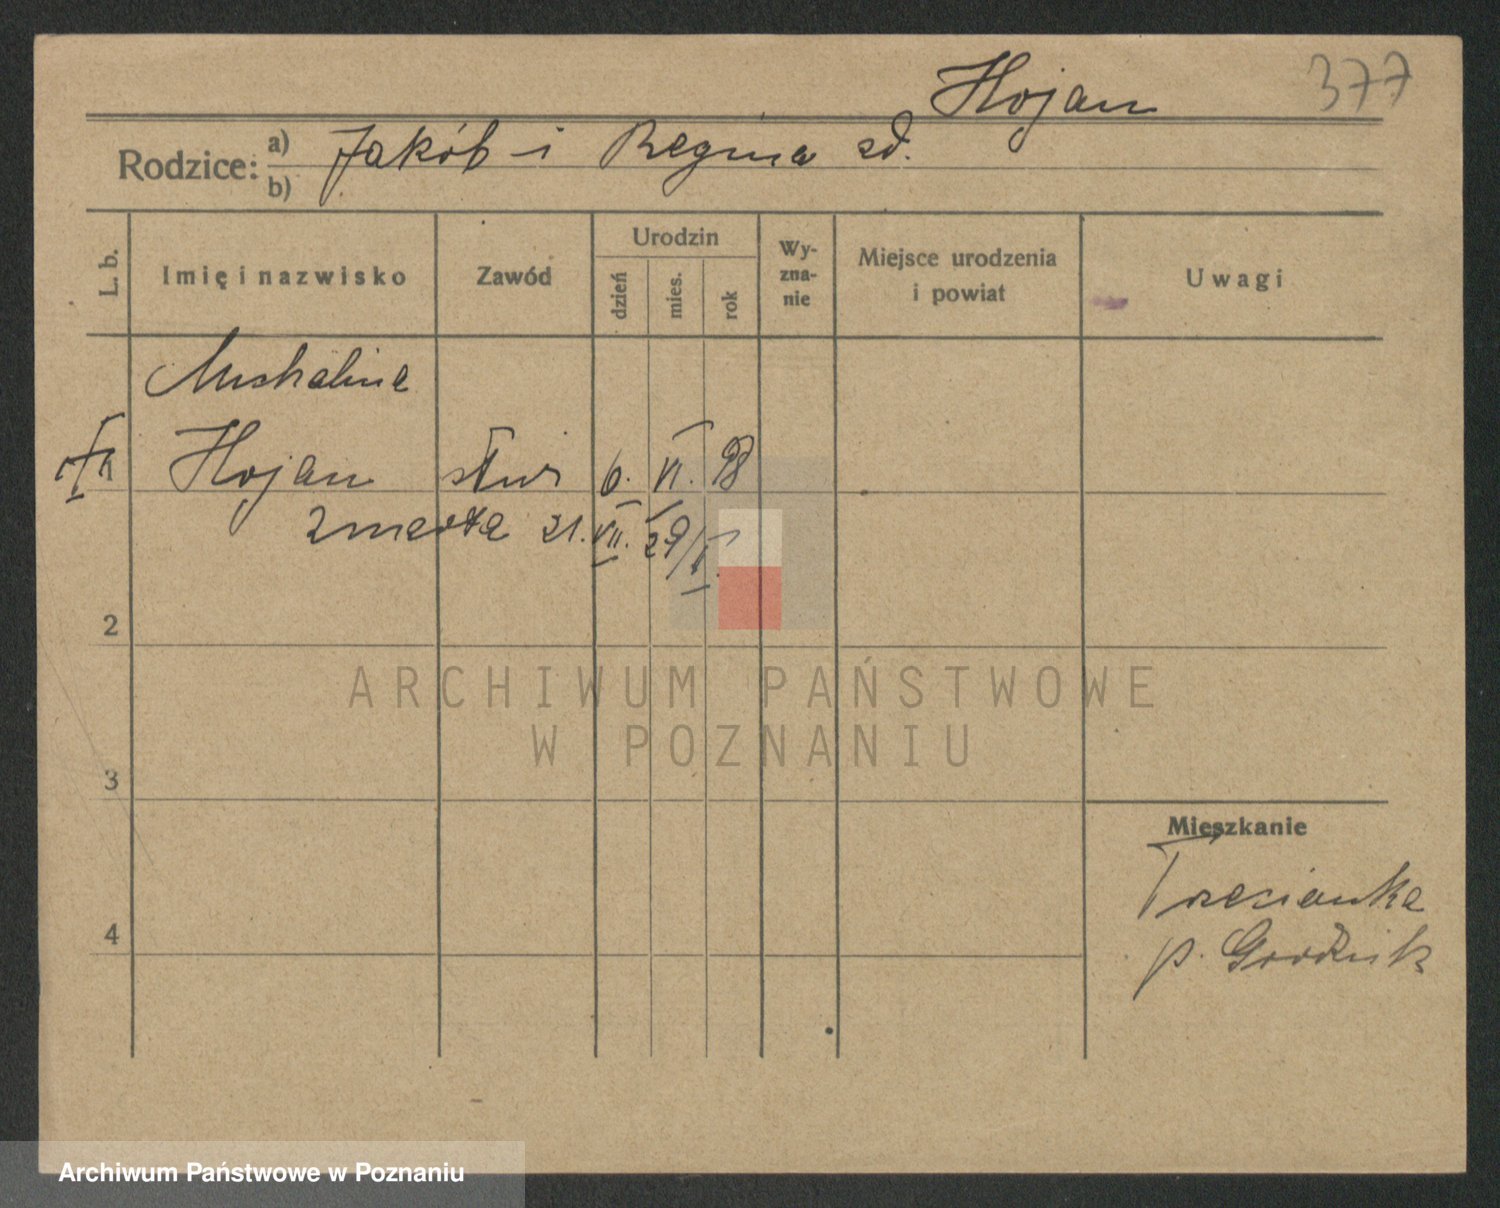 Hojan 377
Rodzice: a) Jakób i Regina zd.
b)
L. b. Imię i nazwisko Zawód Urodzin dzień mies. rok Wy-zna-nie Miejsce urodzenia i powiat Uwagi
Michalina
1 Hojan 6. VI. 98
zmarła 21. VII. 29
2
3
4
Mieszkanie
Trzcianka
p. Grodzisk
ARCHIWUM PAŃSTWOWE
W POZNANIU
Archiwum Państwowe w Poznaniu